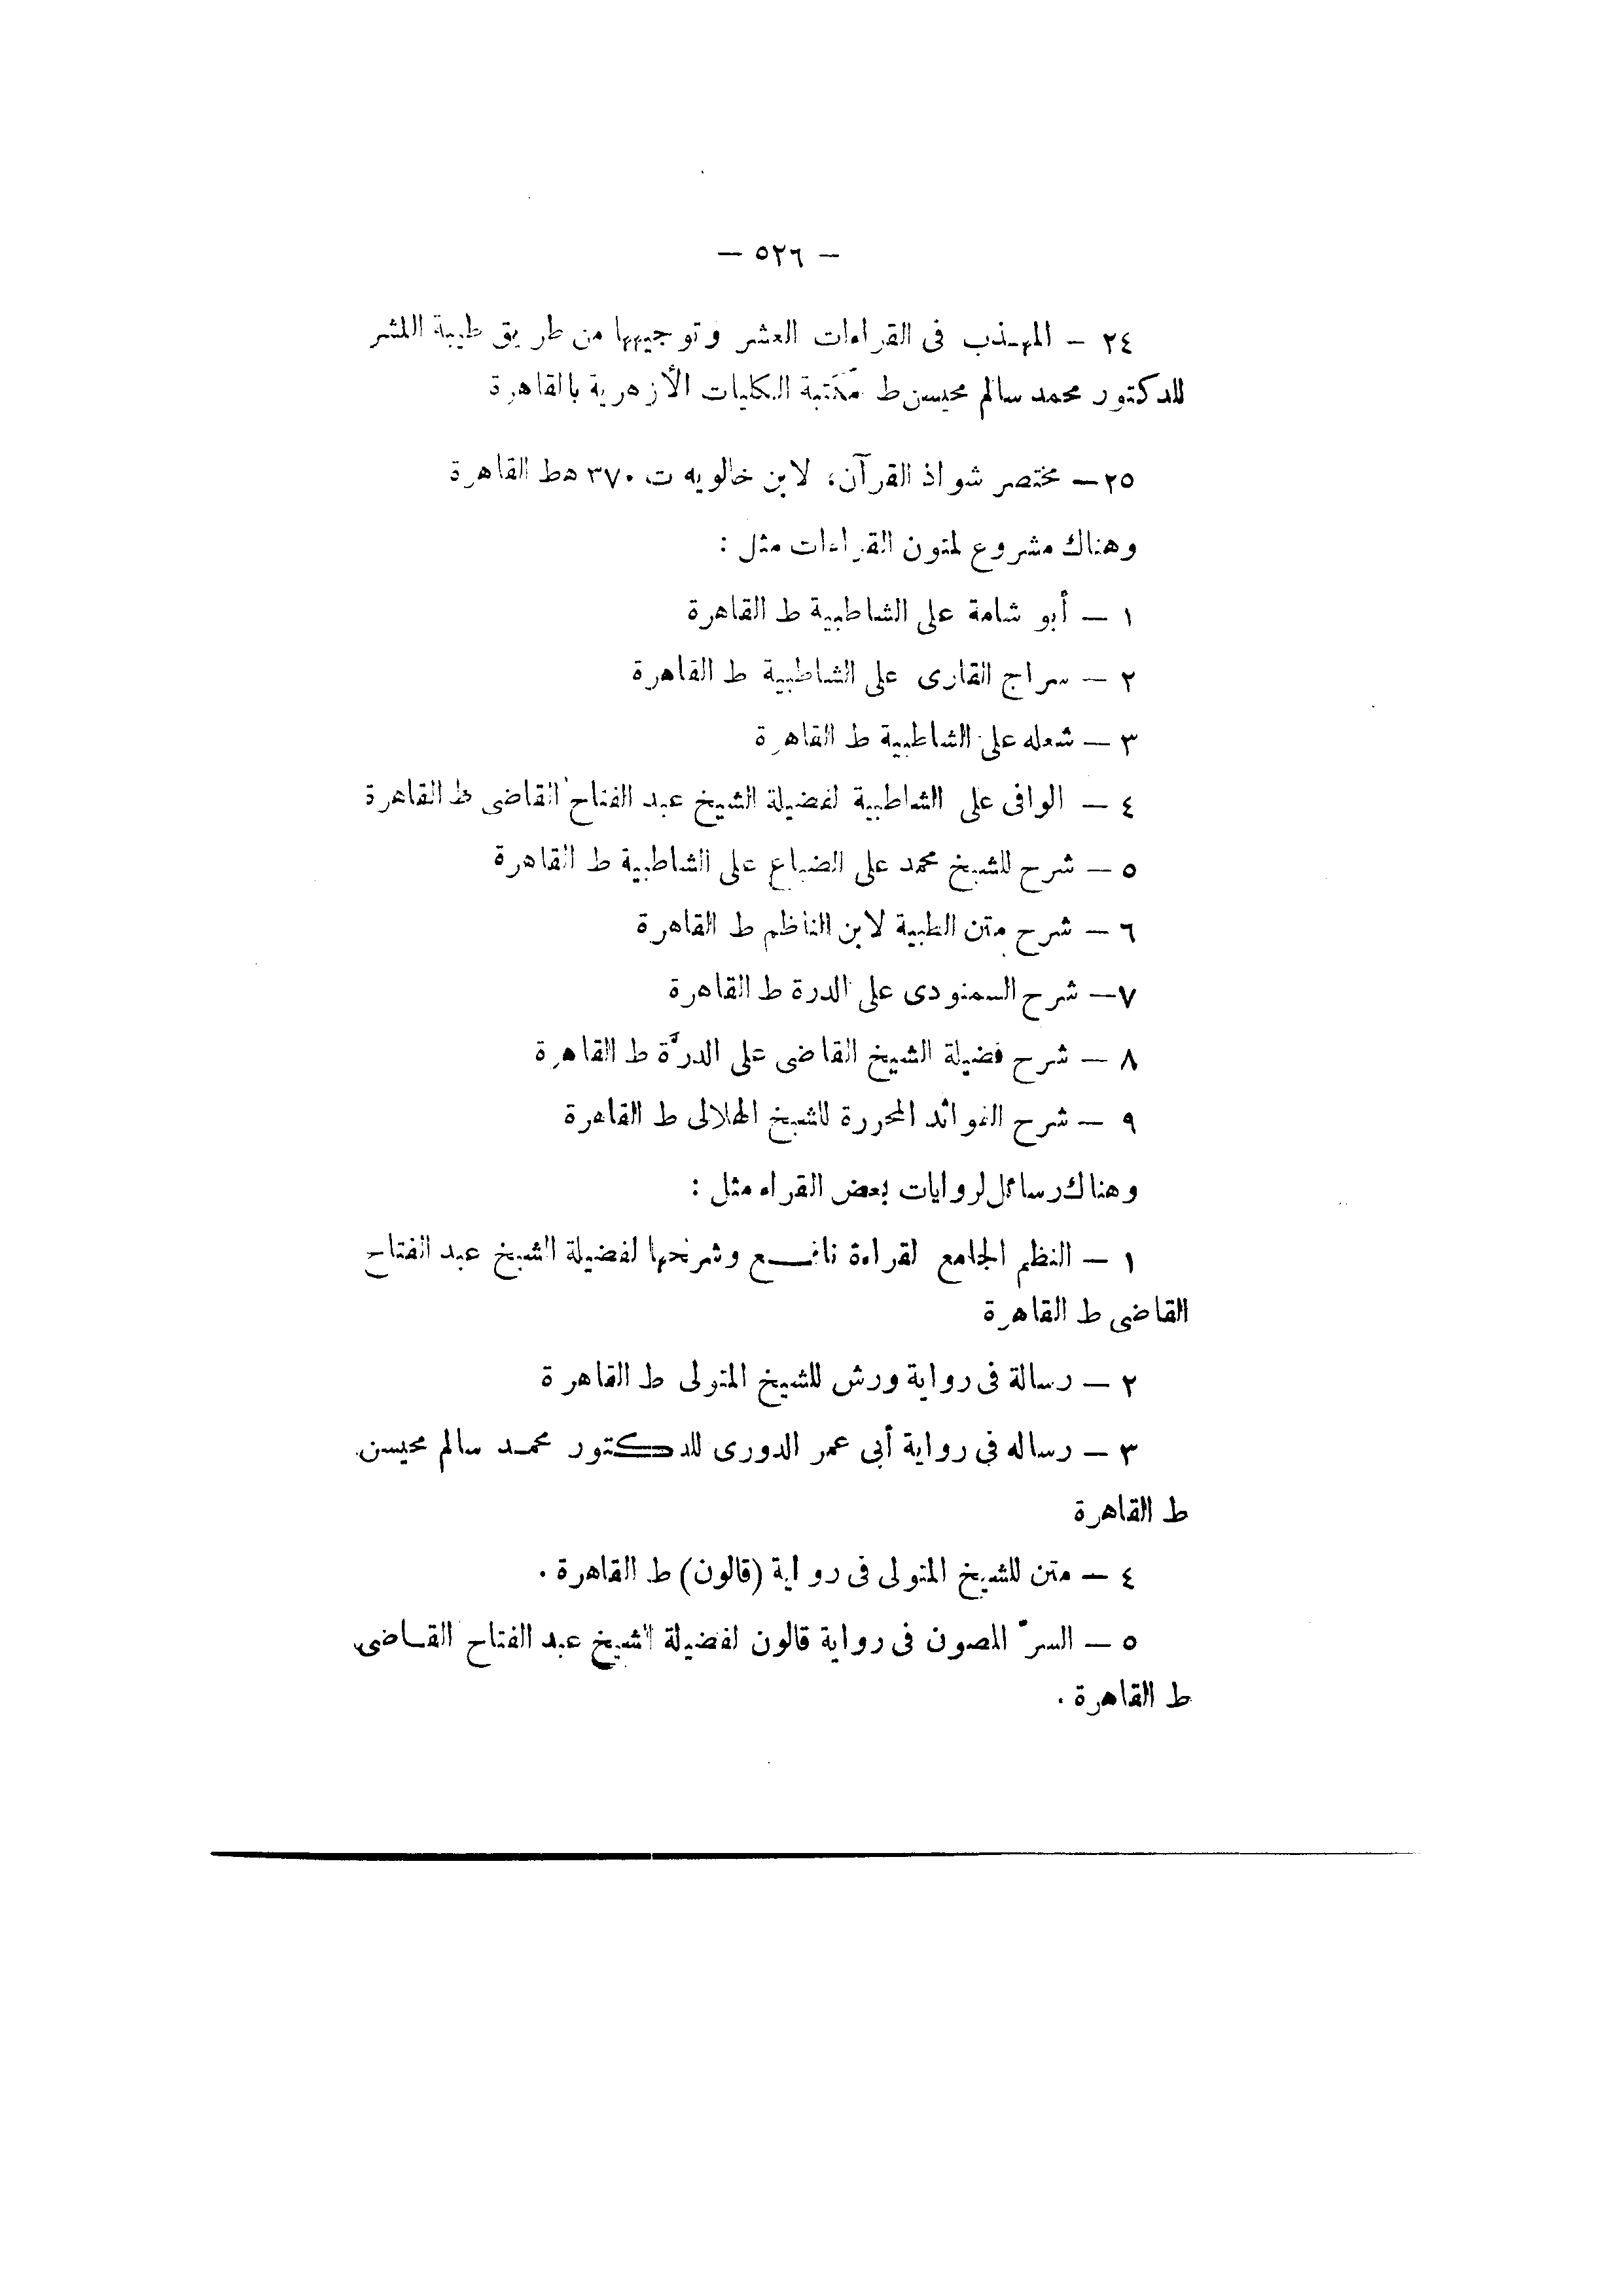 – ٥٢٦ –
٢٤ – المهذب فى القراءات العشر وتوجيهها من طريق طيبة النشر
للدكتور محمد سالم محيسن ط مكتبة الكليات الأزهرية بالقاهرة
٢٥ – مختصر شواذ القرآن، لابن خالويه ت ٣٧٠ هط القاهرة
وهناك مشروع لمتون القراءات مثل :
١ – أبو شامة على الشاطبية ط القاهرة
٢ – سراج القارى على الشاطبية ط القاهرة
٣ – شعله على الشاطبية ط القاهرة
٤ – الوافى على الشاطبية لفضيلة الشيخ عبد الفتاح القاضى ط القاهرة
٥ – شرح للشيخ محمد على الضباع على الشاطبية ط القاهرة
٦ – شرح متن الطيبة لابن الناظم ط القاهرة
٧ – شرح السمنودى على الدرة ط القاهرة
٨ – شرح فضيلة الشيخ القاضى على الدرَّة ط القاهرة
٩ – شرح الفوائد المحررة للشيخ الهلالى ط القاهرة
وهناك رسائل لروايات بعض القراء مثل :
١ – النظم الجامع لقراءة نافـــع وشرحها لفضيلة الشيخ عبد الفتاح
القاضى ط القاهرة
٢ – رسالة فى رواية ورش للشيخ المتولى ط القاهرة
٣ – رساله فى رواية أبى عمر الدورى للدكتور محمد سالم محيسن
ط القاهرة
٤ – متن للشيخ المتولى فى رواية (قالون) ط القاهرة .
٥ – السرّ المصون فى رواية قالون لفضيلة الشيخ عبد الفتاح القاضى
ط القاهرة .